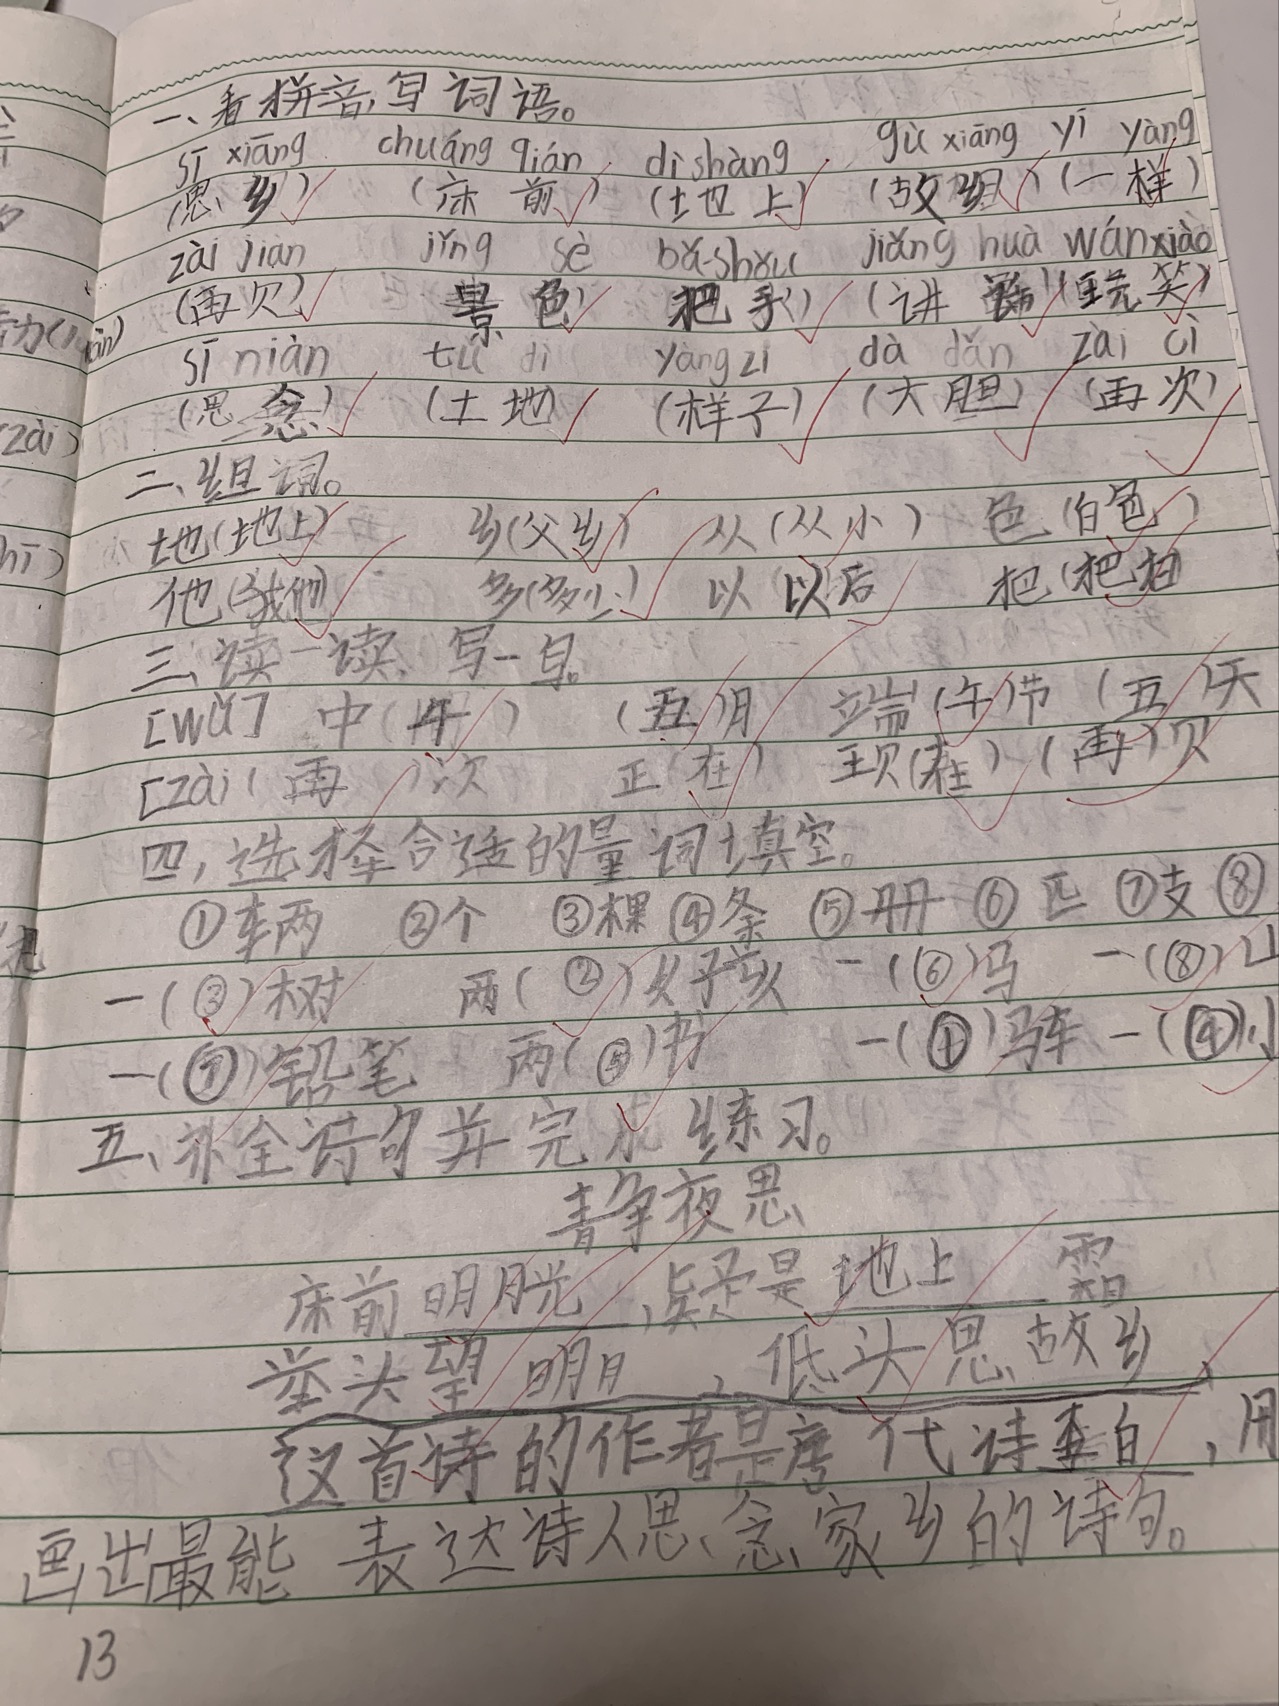 一、看拼音,写词语。
sī xiāng chuáng qián dì shàng gù xiāng yī yàng
(思乡) (床前) (地上) (故乡) (一样)
zài jiàn jǐng sè bǎ shǒu jiǎng huà wán xiào
(再见) 景色) 把手) (讲 (玩笑)
sī niàn tǔ dì yàng zi dà dǎn zài cì
(思念) (土地) (样子) (大胆) (再次)
二、组词。
地(地上) 乡(父乡) 从(从小) 色(白色)
他(我他) 多(多少) 以 以后 把(把
三、读一读,写一写。
[wǔ] 中(午) (五)月 端(午)节 (五)天
[zài(再)次 正(在) 现(在) (再)见
四,选择合适的量词填空。
①车两 ②个 ③棵 ④条 ⑤册 ⑥匹 ⑦支 ⑧
一(③)树 两(②)女子孩 一(⑥)马 一(⑧)山
一(⑦)铅笔 两(⑤)书 一(①)马车 一(④)小
五、补全诗句并完成练习。
静夜思
床前明月光,疑是地上霜
举头望明月,低头思故乡,
这首诗的作者是唐代诗李白,用
画出最能表达诗人思念家乡的诗句。
13